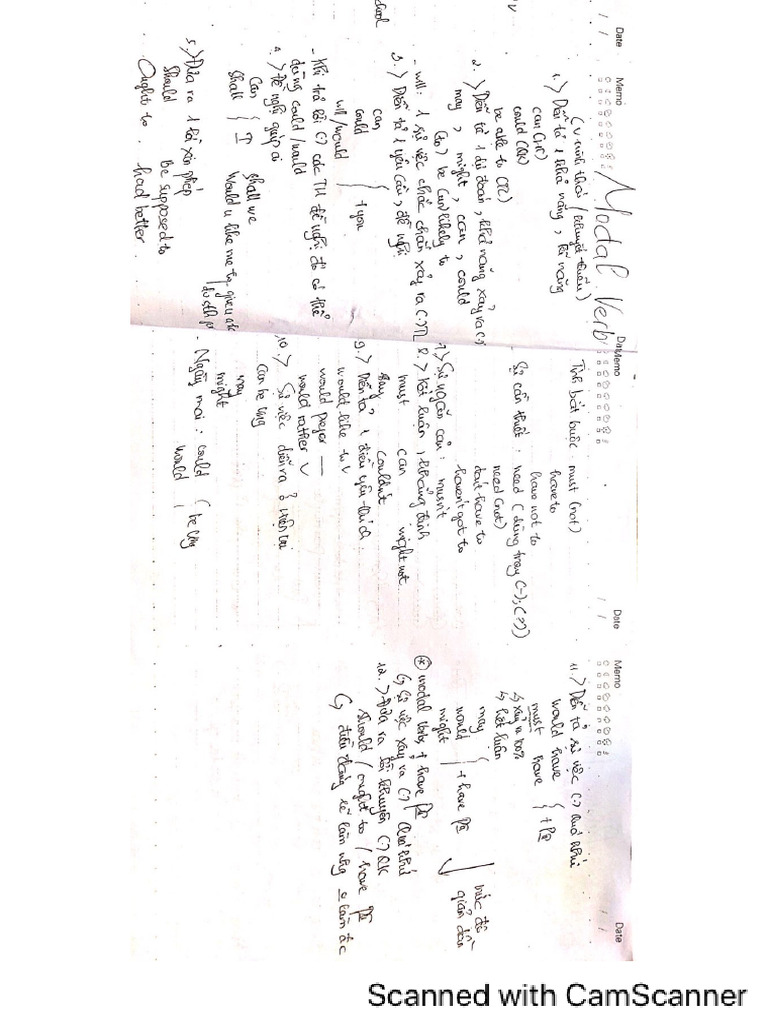 Date
Memo
Modal Verb
(v tình thái / khuyết thiếu)
1.> Diễn tả 1 khả năng, kĩ năng
can (HT)
could (QK)
be able to (TL)
2.> Diễn tả 1 dự đoán, khả năng xảy ra
may, might, can, could
(to) be (un)likely to
- will: 1 sự việc chắc chắn xảy ra (-) TL
3.> Diễn tả 1 yêu cầu, đề nghị
can
could
will/would
+ you
- Khi trả lời (-) các TH đề nghị đó có thể
dùng could/would
4.> Đề nghị giúp ai
Can
Shall
I
shall we
Would u like me to
5.> Đưa ra 1 lời xin phép
should
be supposed to
Ought to
had better
Memo
Tính bắt buộc: must (not)
have to
have not to
Sự cần thiết: need (dùng trong (-); (?))
need (not)
don't have to
haven't got to
7.> Sự ngăn cản: mustn't
8.> Kết luận, khẳng định
must
can
might not
may
couldn't
9.> Diễn tả 1 điều yêu thích:
would like to V
would prefer —
would rather V
10.> Sự việc diễn ra ở hiện tại
can be Ving
may
might
- Ngày mai: could
would
be Ving
Date
Memo
11.> Diễn tả sự việc (-) quá khứ
would have
must have
+ PII
↳ xảy ra 100%
↳ kết luận
may
would
might
+ have PII
mức độ
giảm dần
⊛ modal verb + have PII
↳ Sự việc xảy ra (-) quá khứ
12.> Đưa ra lời khuyên (-) QK
should / ought to / have PII
↳ điều đáng lẽ làm nhg
Date
Scanned with CamScanner